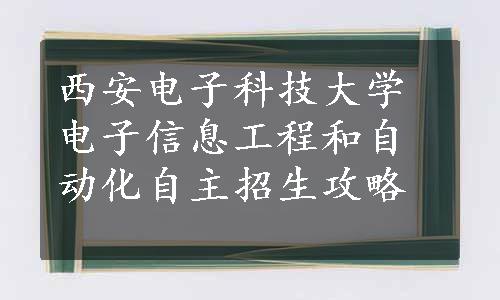 西安电子科技大学
电子信息工程和自
动化自主招生攻略